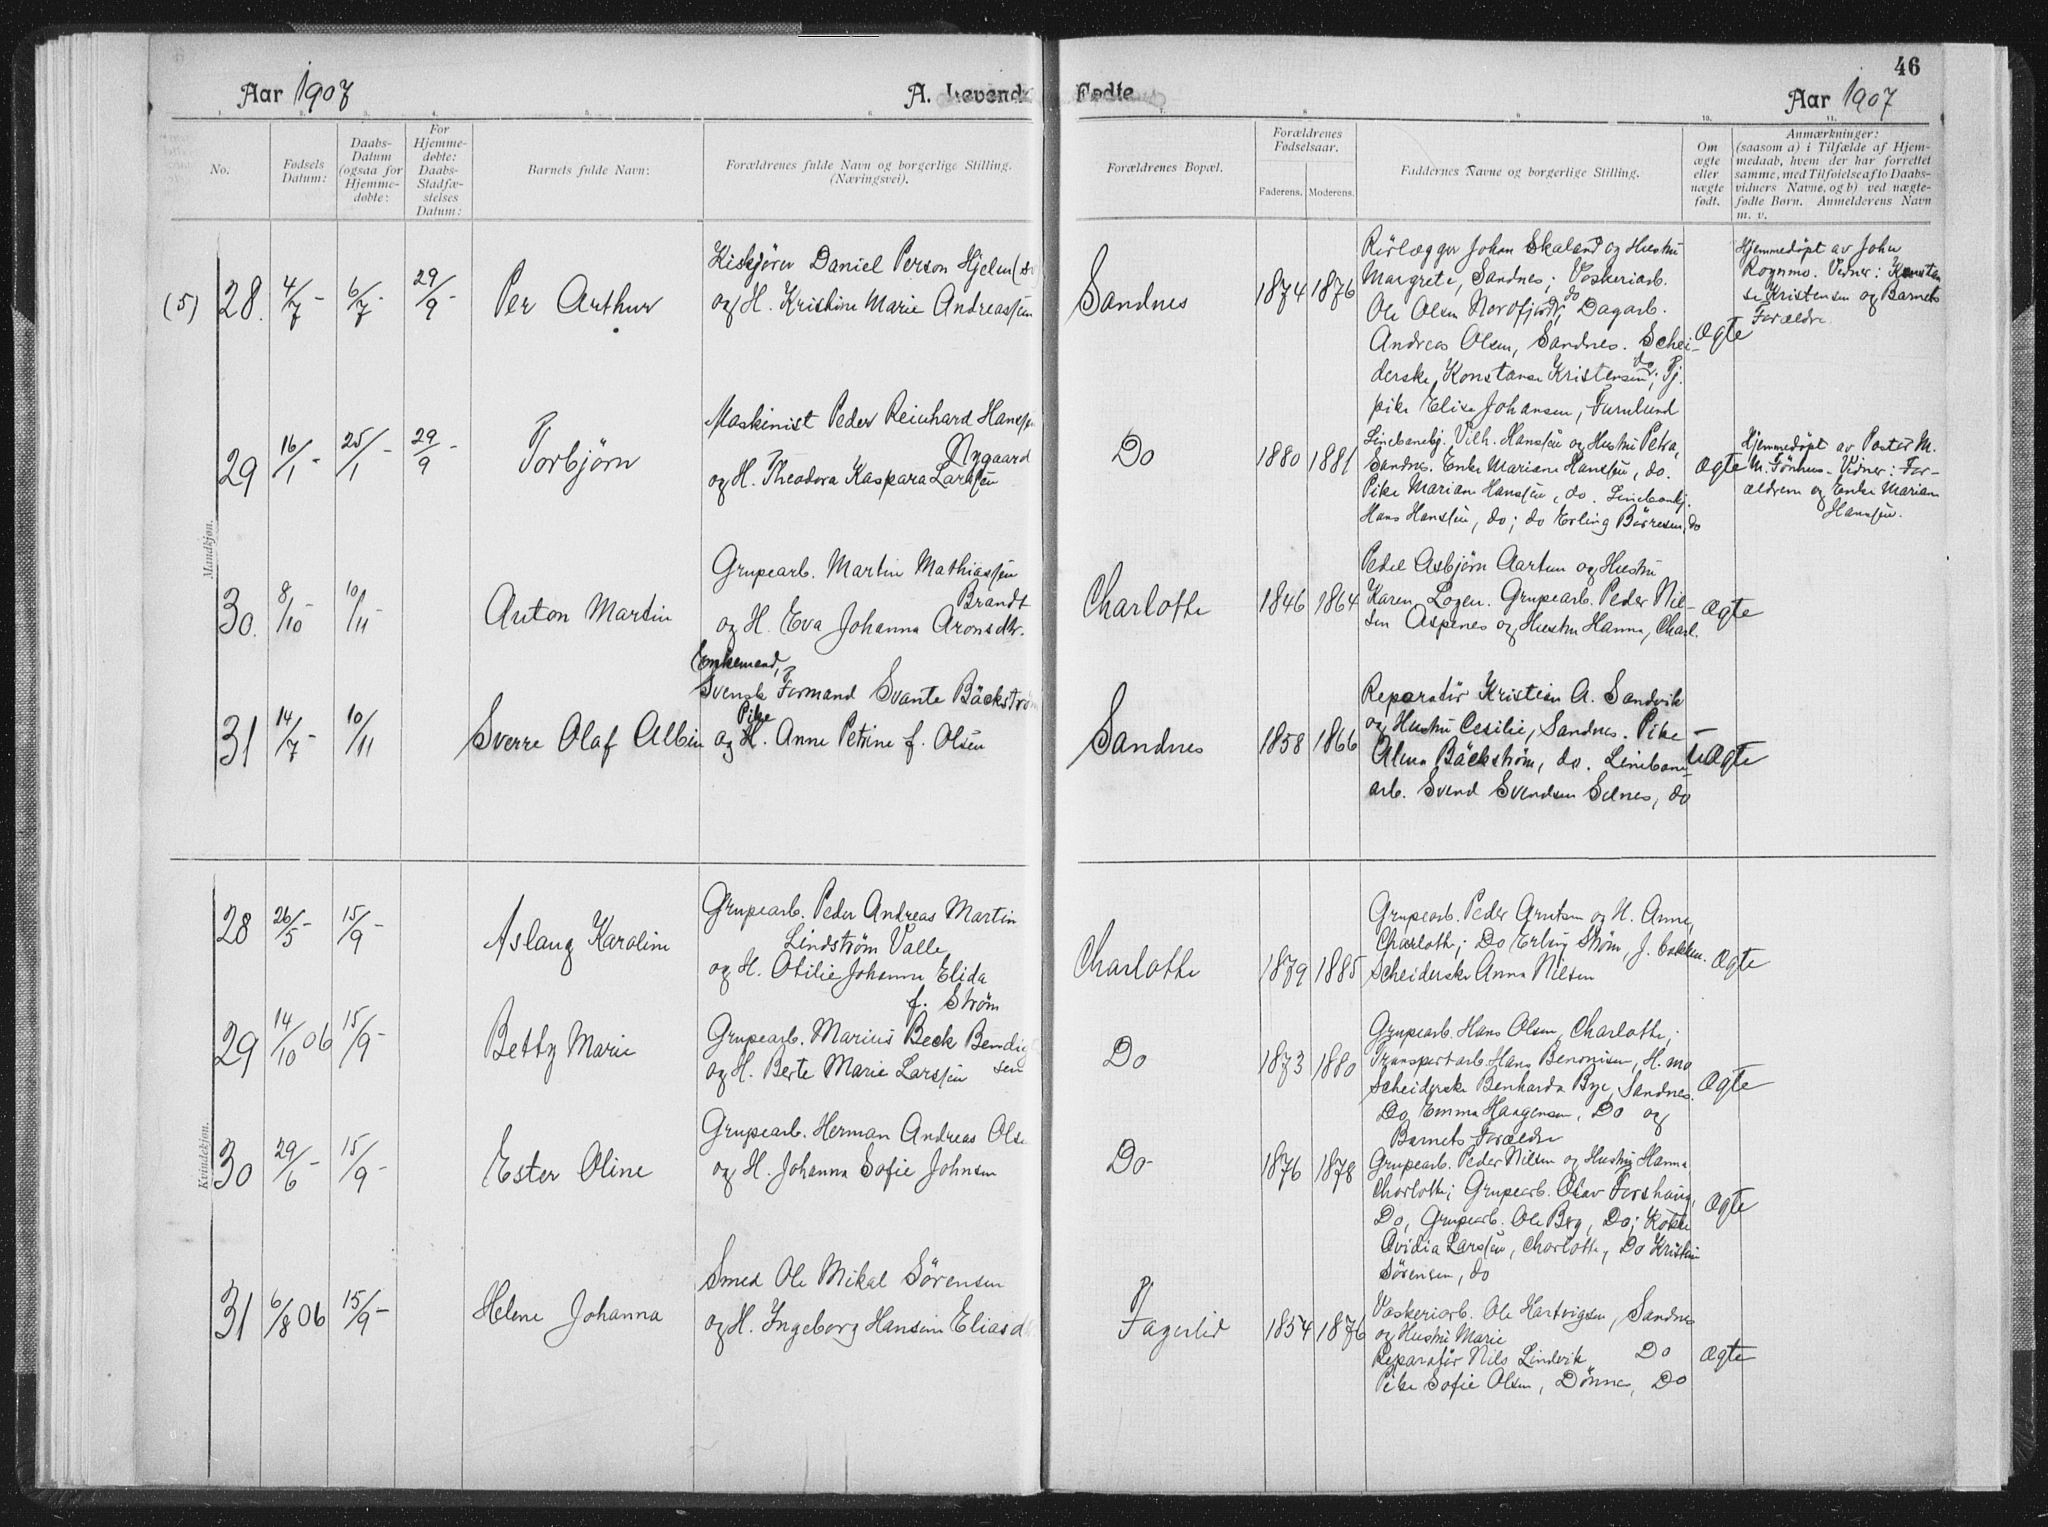 Aar 1907
A. Levende
No.
Fødsels Datum:
Daabs-Datum (ogsaa for Hjemme-døbte:
For Hjemme-døbte: Daabs-Stadfæ-stelses Datum:
Barnets fulde Navn:
Forældrenes fulde Navn og borgerlige Stilling. (Næringsvei).
Fødte
46
Aar 1907
Forældrenes Bopæl.
Forældrenes Fødselsaar.
Faderens. Moderens.
Faddernes Navne og borgerlige Stilling.
Om ægte eller nægte født.
Anmærkninger:
(saasom a) i Tilfælde af Hjem-
medaab, hvem der har forrettet
samme, med Tilføielse af to Daabs-
vidners Navne, og b) ved nægte-
fødte Børn. Anmelderens Navn
m. v.
Mandkjøn.
(5) 28. 4/7 - 6/7 - 29/9 -
Per Arthur
Kiskjører Daniel Person Hjelm
og H. Kristine Marie Andreassen
Sandnes
1874 1876
Rörlægger Johan Skaland og Hustru
Margrete, Sandnes; Vaskeriarb.
Ole Olsen Nordfjord, do; Dagarb.
Andreas Olsen, Sandnes. Schei-
derske Konstanse Kristensen, do; Tj.
pike Elise Johansen, Furulund
ægte
Hjemmedöpt av John
Rognmo. Vidner: Konstan
se Kristensen og Barnets
Forældre
29 16/1 - 25/1 - 29/9 -
Torbjørn
Maskinist Peder Reinhard Hanssen
Nygaard
og H. Theodora Kaspara Larssen
Do
1880 1881
Linebanebj. Vilh. Hanssen og Hustru Petra,
Sandnes. Enke Mariane Hanssen, do.
Pike Mariane Hanssen, do. Linebanebj.
Hans Hanssen, do; do Erling Börresen, do
ægte
Hjemmedöpt av Pastor M.
M. Fönhus. Vidner: For-
ældrene og Enke Mariane
Hanssen.
30. 8/10 10/11
Anton Martin
Grupearb. Martin Mathiassen
Brandt
og H. Eva Johanna Aronsdtr.
Charlotte
1846 1864
Pedel Asbjørn Aartun og Hustru
Karen, Logen. Grupearb. Peder Nil-
sen Aspenes og Hustru Hanna, Charl.
ægte
31 14/7 - 10/11
Sverre Olaf Albin
Enkemand,
Svensk Formand Svante Bäckström
og Pike Anne Petrine f. Olsen
Sandnes
1858 1866
Reparatör Kristian A. Sandvik
og Hustru Cesilie, Sandnes. Pike
Alma Bäckstrøm, do. Linebane-
arb. Svend Svendsen Selnes, do
uægte
Kvindekjøn.
28 26/5 - 15/9 -
Aslaug Karoline
Grupearb. Peder Andreas Martin
Lindstrøm Valle
og H. Otilie Johanne Elida
f. Strøm
Charlotte
1879 1885
Grupearb. Peder Arntsen og H. Anne,
Charlotte; Do Erling Strøm, J.
Scheiderske Anna Nilsen
ægte
29 14/10 06 15/9 -
Betty Marie
Grupearb. Marius Beck Bendigt
sen
og H. Berte Marie Larssen
Do
1873 1880
Grupearb. Hans Olsen, Charlotte;
Transportarb. Hans Benonisen, H. mo
Scheiderske Benharda Bye, Sandnes.
Do, Emma Haagensen, Do og
Barnets Forældre
ægte
30 29/6 - 15/9 -
Ester Oline
Grupearb. Herman Andreas Olse
og H. Johanna Sofie Johnsen
Do
1876 1878
Grupearb. Peder Nilsen og Hustru Hanna
Charlotte; Grupearb. Olav Forshaug,
Do, Grupearb. Ole Berg, Do; Kokke
Ovidia Larssen, Charlotte, Do Kristin
Sörensen, do
ægte
31 6/8 06 15/9 -
Helene Johanna
Smed Ole Mikal Sörensen
og H. Ingeborg Hansine Eliasd
Fagerlid
1854 1876
Vaskeriarb. Ole Hartvigsen, Sandnes
og Hustru Marie
Reparatör Nils Lindvik Do
Pike Sofie Olsen, Dönnes, Do
ægte